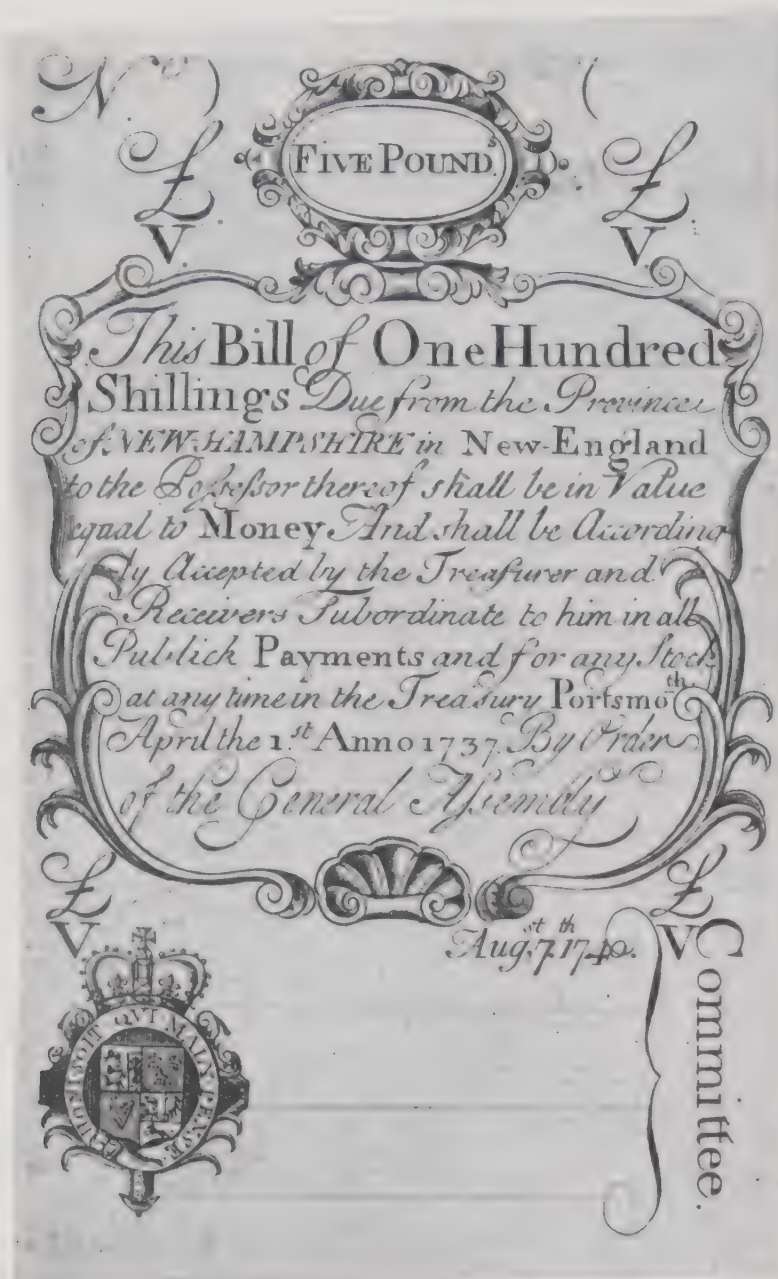 No ( ) (
FIVE POUND.s
£ £
V. V.
This Bill of One Hundred
Shillings Due from the Province
of NEW-HAMPSHIRE in New-England
to the Poſseſsor thereof shall be in Value
equal to Money And shall be According
ly Accepted by the Treaſurer and
Receivers Subordinate to him in all
Publick Payments and for any Stock
at any time in the Treasury Portsmoth.
April the 1.st Anno 1737. By Order
of the General Aſsembly
£ £
V V
Augst. 7th. 1740.
Committee.
HONI·SOIT·QVI·MALY·PENSE·